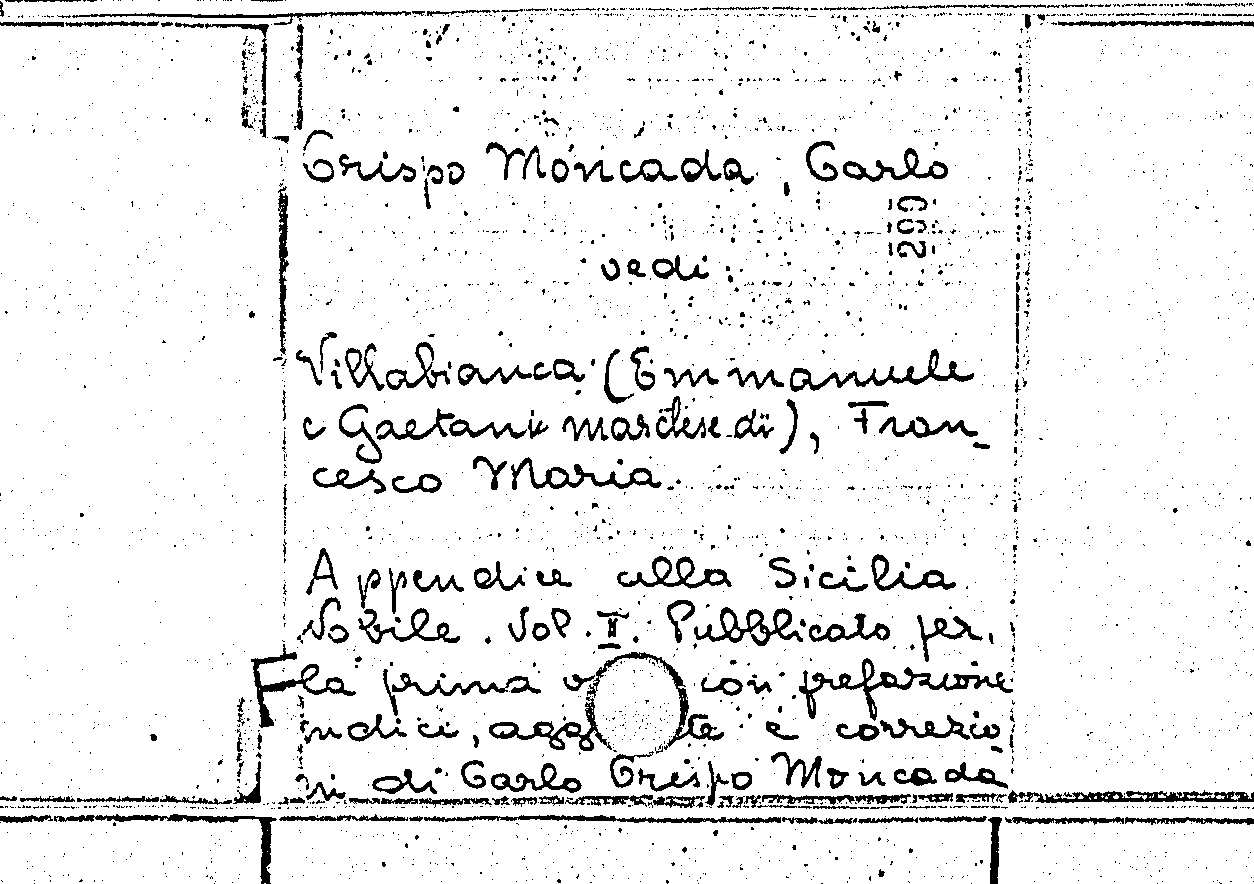 Crispo Moncada, Carlo
299
vedi:
Villabianca (Emmanuele
e Gaetani marchese di), Fran_
cesco Maria.
Appendice alla Sicilia
Nobile. Vol. II. Pubblicato per
la prima con prefazione
indici, e correzio_
ni di Carlo Crispo Moncada